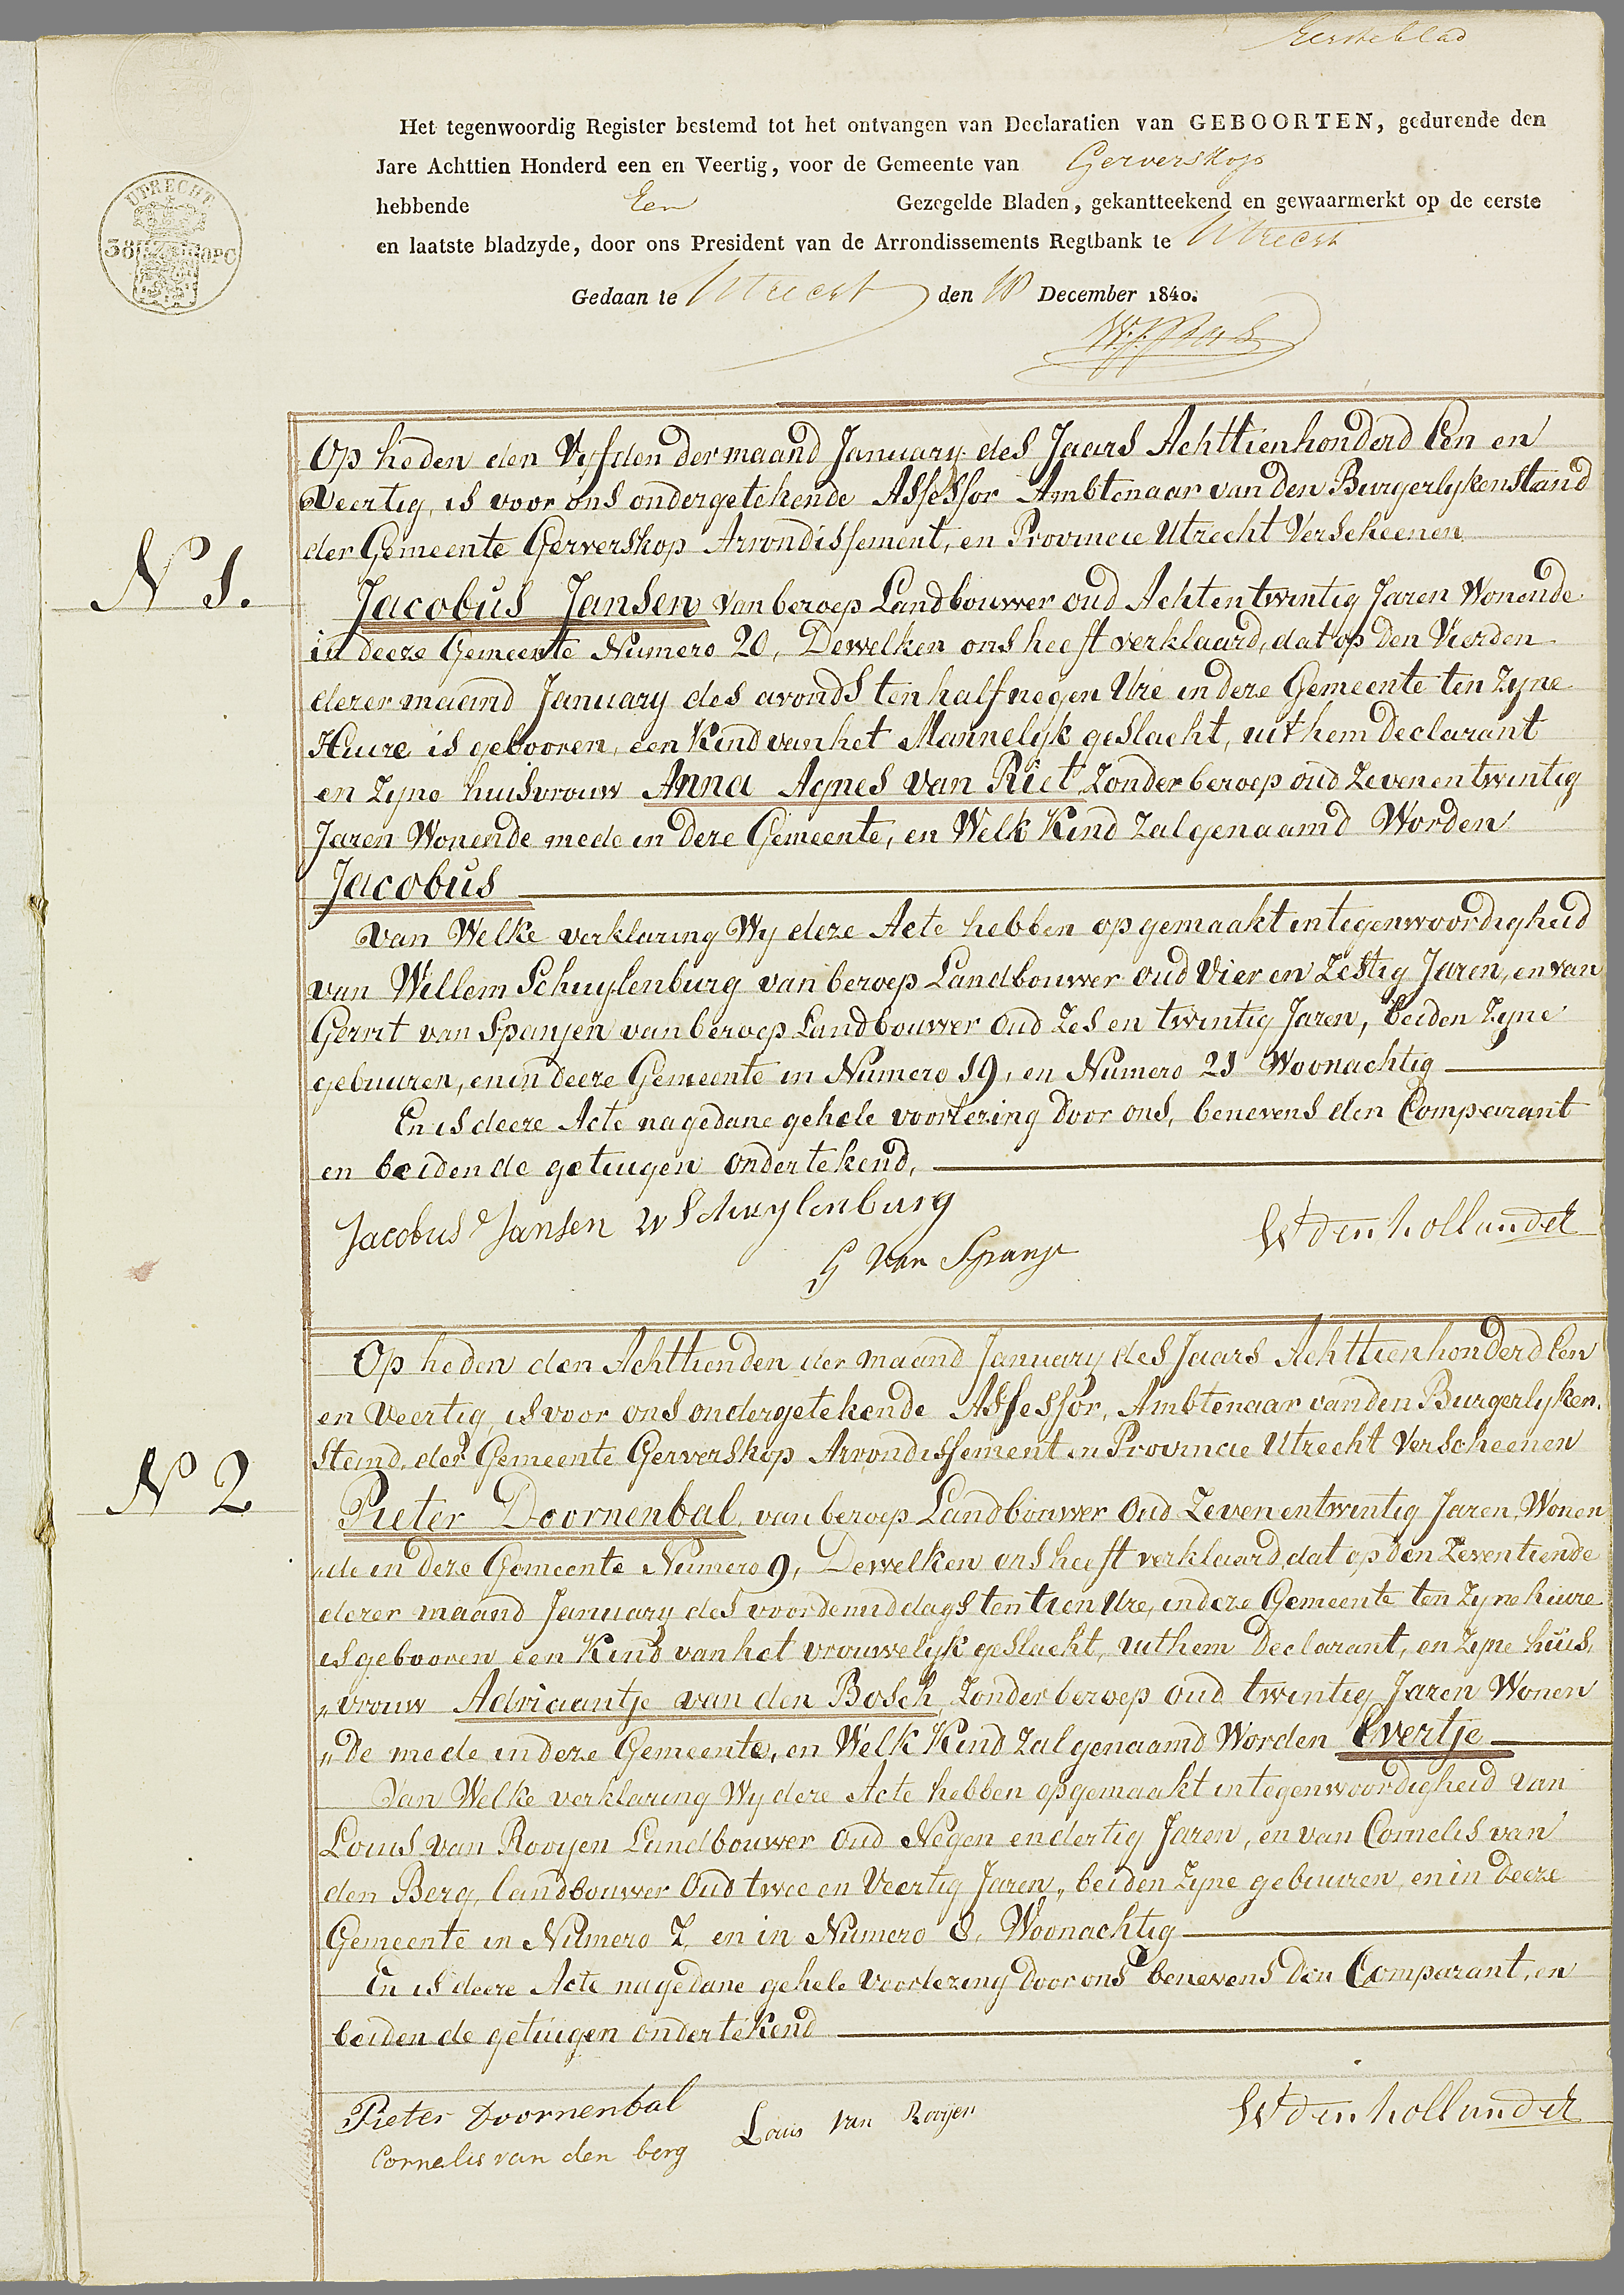 Eersteblad
Het tegenwoordig Register bestemd tot het ontvangen van Declaratien van GEBOORTEN, gedurende den
Jare Achttien Honderd een en Veertig, voor de Gemeente van Gerverskop
hebbende Een Gezegelde Bladen, gekantteekend en gewaarmerkt op de eerste
en laatste bladzyde, door ons President van de Arrondissements Regtbank te Utrecht
UTRECHT
Gedaan te Utrecht den 18 December 1840.
Op heden den Vyfden der maand January des Jaars Achttienhonderd Een en
Veertig, is voor ons ondergetekende Assessor Ambtenaar van den Burgerlykenstand
der Gemeente Gerverskop Arrondissement, en Provincie Utrecht Verscheenen
N 1.
Jacobus Jansen van beroep Landbouwer oud Achtentwintig Jaren Wonende
in deeze Gemeente Numero 20, Dewelken ons heeft verklaard, dat op den Vierden
dezer maand January des avonds ten half negen Ure in deze Gemeente ten zyne
Huize is gebooren, een Kind van het Mannelyk geslacht, uit hem Declarant
en Zyne huisvrouw Anna Agnes van Riet Zonder beroep oud Zevenentwintig
Jaren Wonende mede in deze Gemeente, en Welk Kind Zal genaamd Worden
Jacobus
Van Welke verklaring Wy deze Acte hebben opgemaakt in tegenwoordigheid
van Willem Schuylenburg van beroep Landbouwer oud Vier en Zestig Jaren, en van
Gerrit van Spanjen van beroep Landbouwer Oud Zes en twintig Jaren, beiden Zyne
gebuuren, en in deeze Gemeente in Numero 19, en Numero 21 Woonachtig
En is deeze Acte na gedane gehele voorlezing door ons, benevens den Comparant
en beiden de getuigen ondertekend,
Jacobus Jansen W Schuylenburg
G Van Spanje
W den hollander
Op heden den Achttienden der maand January des Jaars Achttienhonderd Een
en Veertig, is voor ons ondergetekende Assessor, Ambtenaar van den Burgerlyken
Stand, der Gemeente Gerverskop Arrondissement en Provincie Utrecht Verscheenen
N 2
Pieter Doornenbal, van beroep Landbouwer Oud Zevenentwintig Jaren, Wonen
„de in deze Gemeente Numero 9, Dewelken ons heeft verklaard, dat op den Zeventiende
dezer maand January des voordemiddags ten tien Ure, in deze Gemeente ten Zyne huize
is gebooren een Kind van het vrouwelyk geslacht, uit hem Declarant, en Zyne huis,
„vrouw Adriaantje van den Bosch, Zonder beroep oud twintig Jaren Wonen
„De mede in deze Gemeente, en Welk Kind Zal genaamd Worden Evertje
Van Welke verklaring Wy deze Acte hebben opgemaakt in tegenwoordigheid van
Louis van Rooyen Landbouwer Oud Negen en dertig Jaren, en van Cornelis van
den Berg, landbouwer Oud twee en Veertig Jaren, beiden Zyne gebuuren, en in deeze
Gemeente in Numero 7, en in Numero 8, Woonachtig
En is deeze Acte na gedane gehele Voorlezing door ons benevens den Comparant, en
beiden de getuigen ondertekend
Pieter Doornenbal
Cornelis van den berg
Louis Van Rooijen
W den hollander